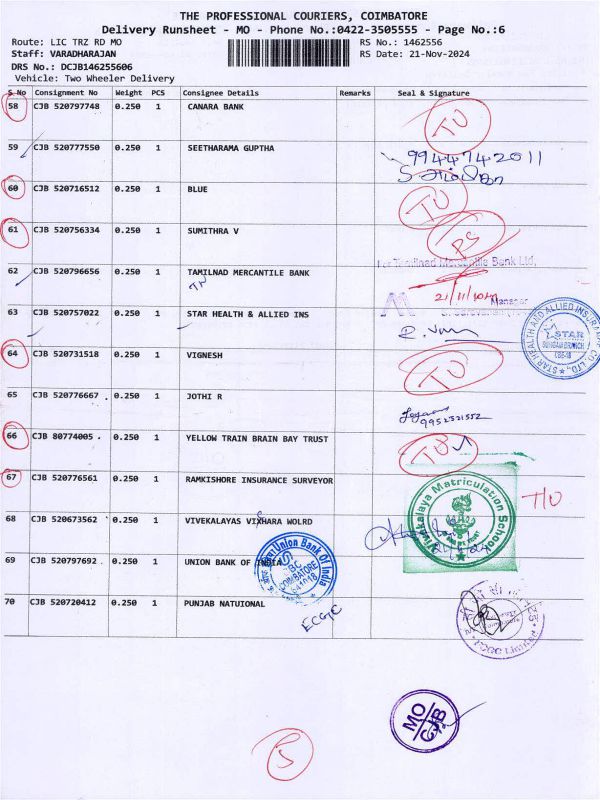 THE PROFESSIONAL COURIERS, COIMBATORE
Delivery Runsheet - MO - Phone No.:0422-3505555 - Page No.:6
Route: LIC TRZ RD MO RS No.: 1462556
Staff: VARADHARAJAN RS Date: 21-Nov-2024
DRS No.: DCJB146255606
Vehicle: Two Wheeler Delivery
S No Consignment No Weight PCS Consignee Details Remarks Seal & Signature
58 CJB 520797748 0.250 1 CANARA BANK TU
59 CJB 520777550 0.250 1 SEETHARAMA GUPTHA 9944742011
60 CJB 520716512 0.250 1 BLUE TU
61 CJB 520756334 0.250 1 SUMITHRA V RS
For Tamilnad Mercantile Bank Ltd,
62 CJB 520796656 0.250 1 TAMILNAD MERCANTILE BANK
TN
Manager
63 CJB 520757022 0.250 1 STAR HEALTH & ALLIED INS
STAR HEALTH AND ALLIED INSURANCE CO. LTD.
STAR
64 CJB 520731518 0.250 1 VIGNESH TU
65 CJB 520776667 . 0.250 1 JOTHI R
9952521552
66 CJB 80774005 . 0.250 1 YELLOW TRAIN BRAIN BAY TRUST TU
67 CJB 520776561 0.250 1 RAMKISHORE INSURANCE SURVEYOR T/U
Vivekalaya Matriculation School
68 CJB 520673562 0.250 1 VIVEKALAYAS VIXHARA WOLRD
69 CJB 520797692 0.250 1 UNION BANK OF INDIA
Union Bank Of India
COIMBATORE
641018
70 CJB 520720412 0.250 1 PUNJAB NATUIONAL
ECGC
MO
CJB